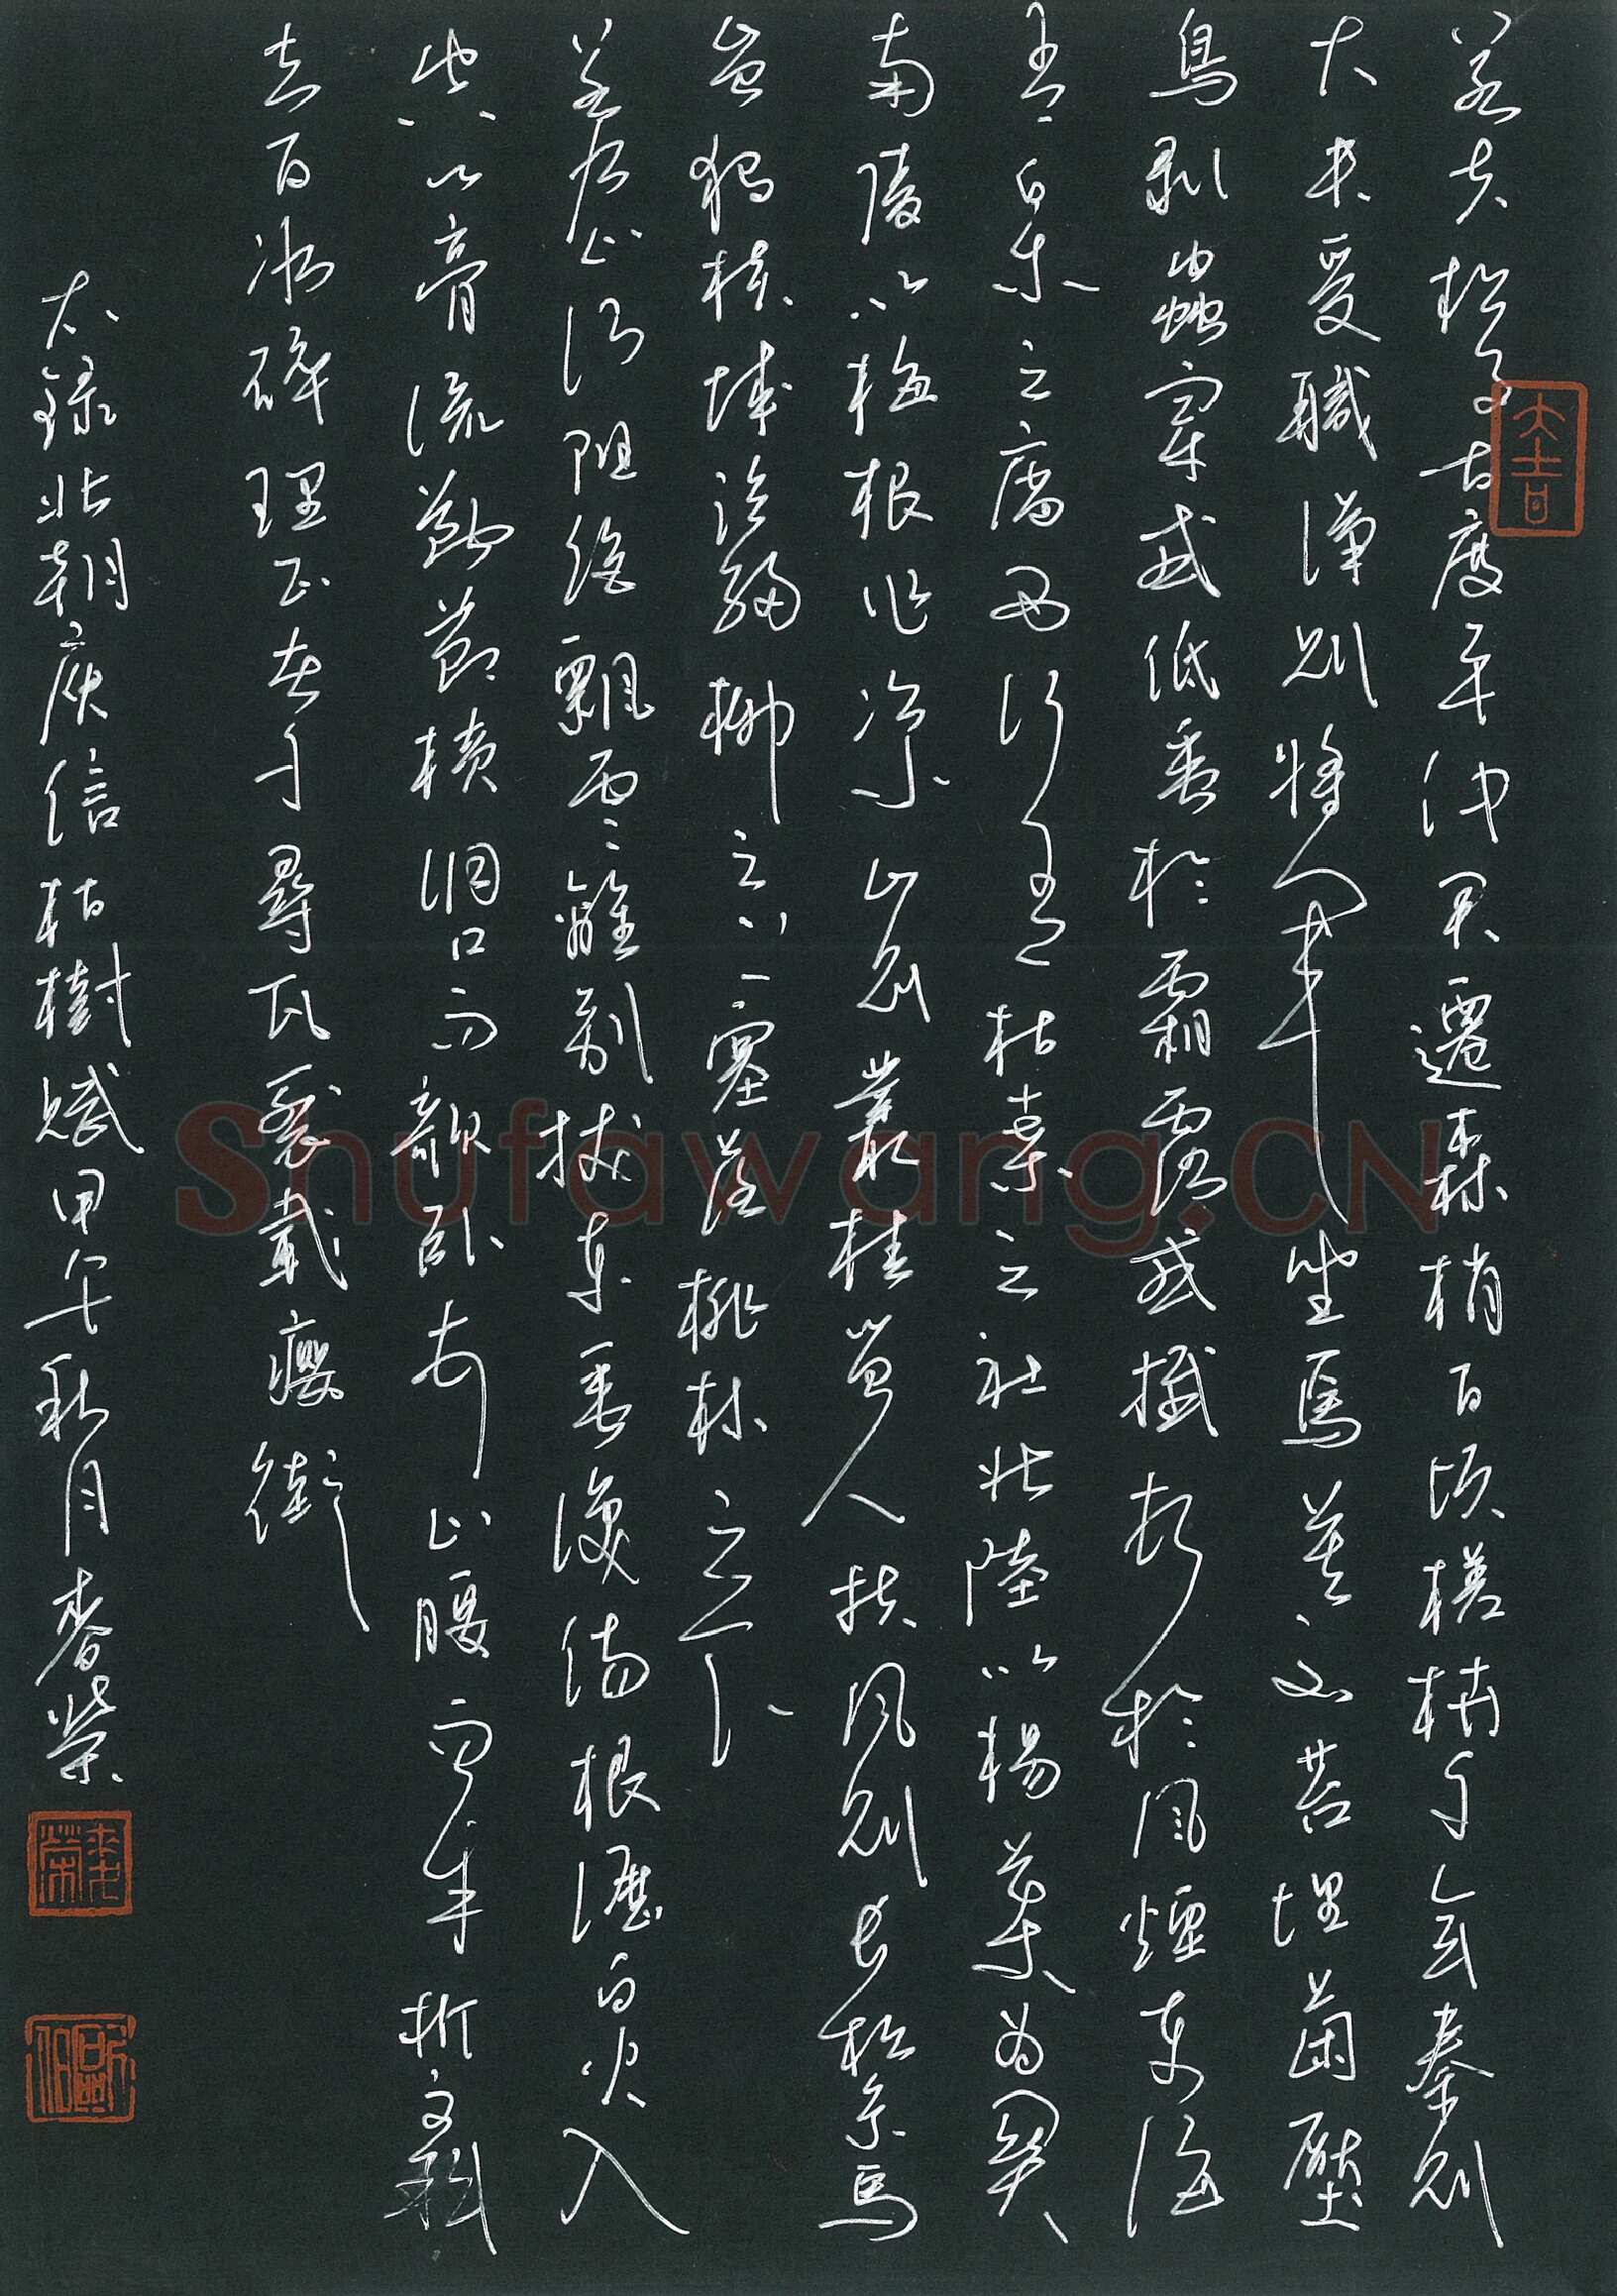 若夫松子古度平仲君遷森梢百頃槎枿千年秦則
大夫受職漢則將軍坐焉莫不苔埋菌壓
鳥剝蟲穿或低垂於霜露或撼頓於風煙東海
有白木之廟西河有枯桑之社北陸以楊葉為關
南陵以梅根作冶小山則叢桂留人扶風則長松系馬
豈獨城臨細柳之上塞落桃林之下
若乃山河阻絕飄零離別拔本垂淚傷根瀝血火入
空心膏流斷節橫洞口而欹卧頓山腰而半折文斜
者百冰碎理正者千尋瓦裂載癭銜
錄北朝庾信枯樹賦甲午秋月春榮
大吉
shufawang.CN